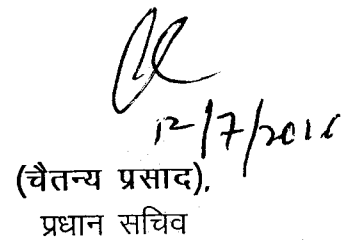 12/7/2016
(चैतन्य प्रसाद),
प्रधान सचिव